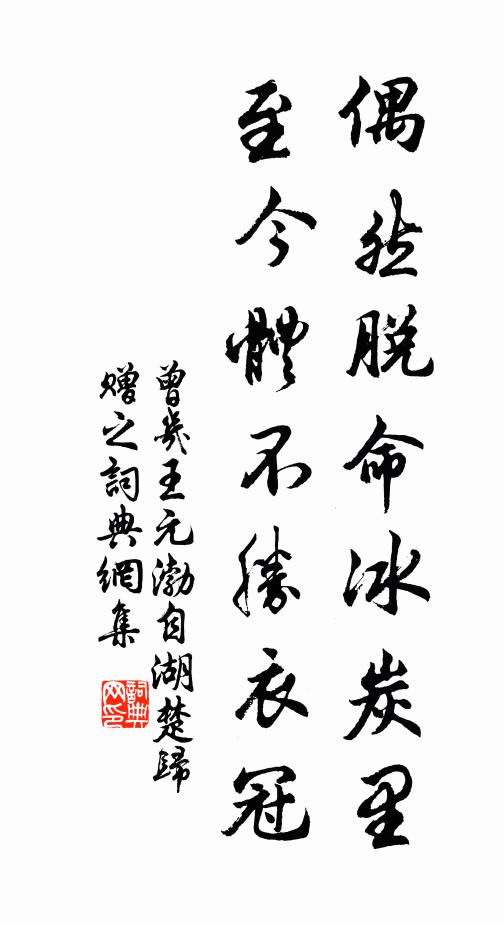 偶然脫命冰炭里
至今體不勝衣冠
曾幾王元渤自湖楚歸
贈之詞典網集
詞典
网印